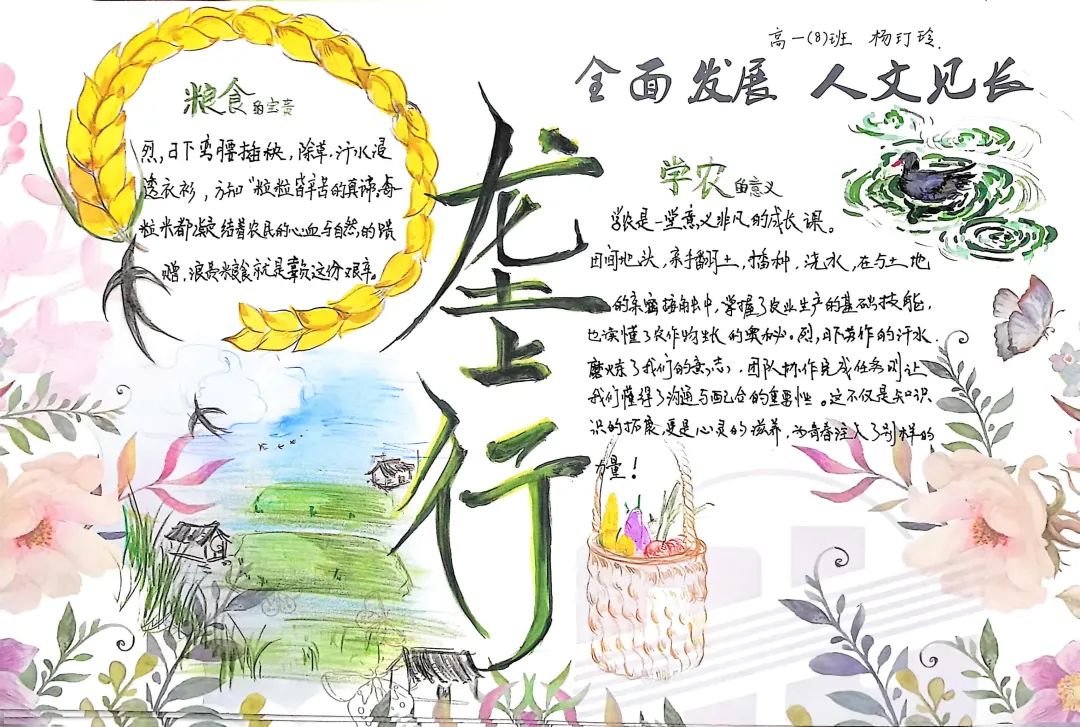 高一(8)班 杨玎玲.
全面发展 人文见长
粮食的宝贵
烈日下弯腰插秧，除草，汗水浸
透衣衫，方知“粒粒皆辛苦的真谛，每
粒米都凝结着农民的心血与自然的馈
赠，浪费粮食就是辜负这份艰辛。
垄上行
学农的意义
学农是一堂意义非凡的成长课。
田间地头，亲手翻土，播种，浇水，在与土地
的亲密接触中，掌握了农业生产的基础技能，
也读懂了农作物生长的奥秘。烈日下劳作的汗水，
磨炼了我们的意志，团队协作完成任务则让
我们懂得了沟通与配合的重要性。这不仅是知识
识的拓展，更是心灵的滋养，为青春注入了别样的
力量！